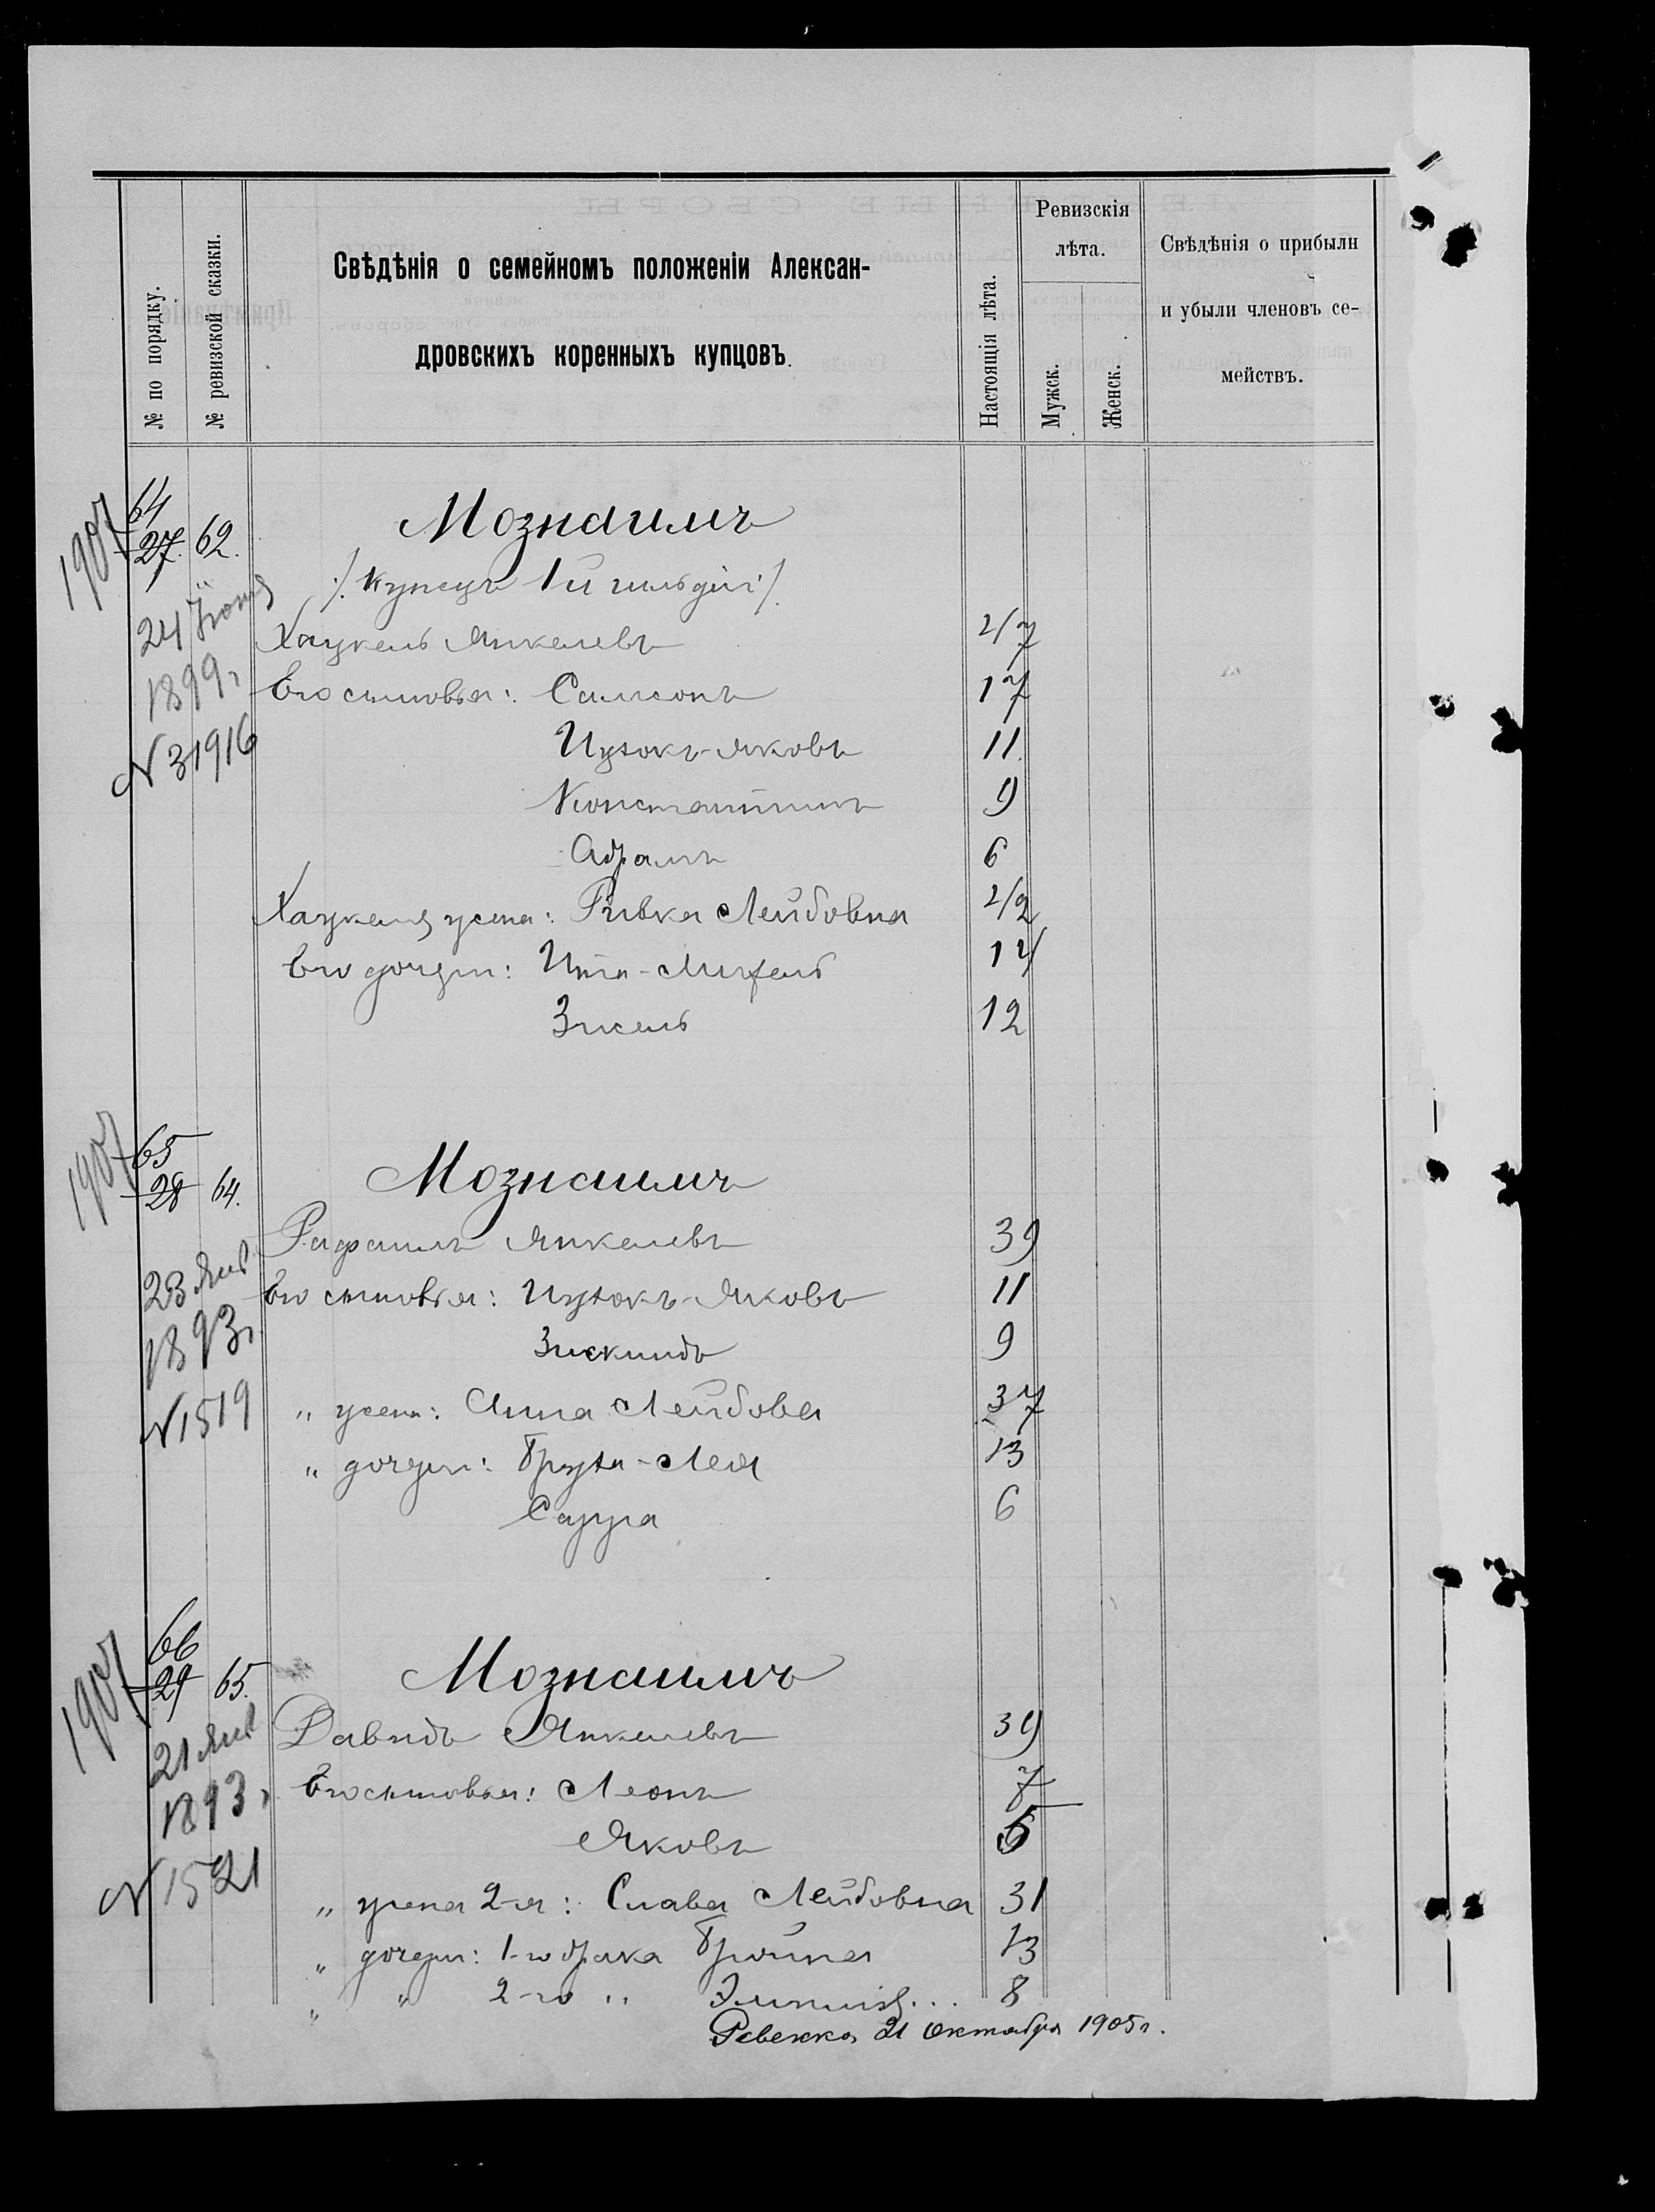 № по порядку.
№ ревизской сказки.
Свѣдѣнія о семейномъ положеніи Алексан-
дровскихъ коренныхъ купцовъ.
Настоящія лѣта.
Ревизскія
лѣта.
Мужск.
Женск.
Свѣдѣнія о прибыли
и убыли членовъ се-
мействъ.
1907
64
27. 62.
Мознаимъ
/: Купецъ 1й гильдіи :/
24 Іюня
1899 г
N 31916
Хацкель Янкелевъ 47
Его сыновья: Самсонъ 17
Ицхокъ-Яковъ 11.
Константинъ 9
Абрамъ 6
Хацкеля жена: Ривка Лейбовна 42
Его дочери: Ита- 14
Зисель 12
1907
65
28 64.
Мознаимъ
Рафаилъ Янкелевъ 39
23 Янв
1893 г
N 1519
Его сыновья: Ицхокъ-Яковъ 11
Зискиндъ 9
„ жена: Анна Лейбова 37
„ дочери: Бруха-Лея 13
Сарра 6
1907
66
29 65.
Мознаимъ
21 Янв
1893 г
N 1521
Давидъ Янкелевъ 39
Его сыновья: Леонъ 7
Яковъ 5
„ жена 2-я: Слава Лейбовна 31
„ дочери: 1-го брака Бройна 13
„ „ 2-го „ 8
Ревекка 21 Октября 1905 г.